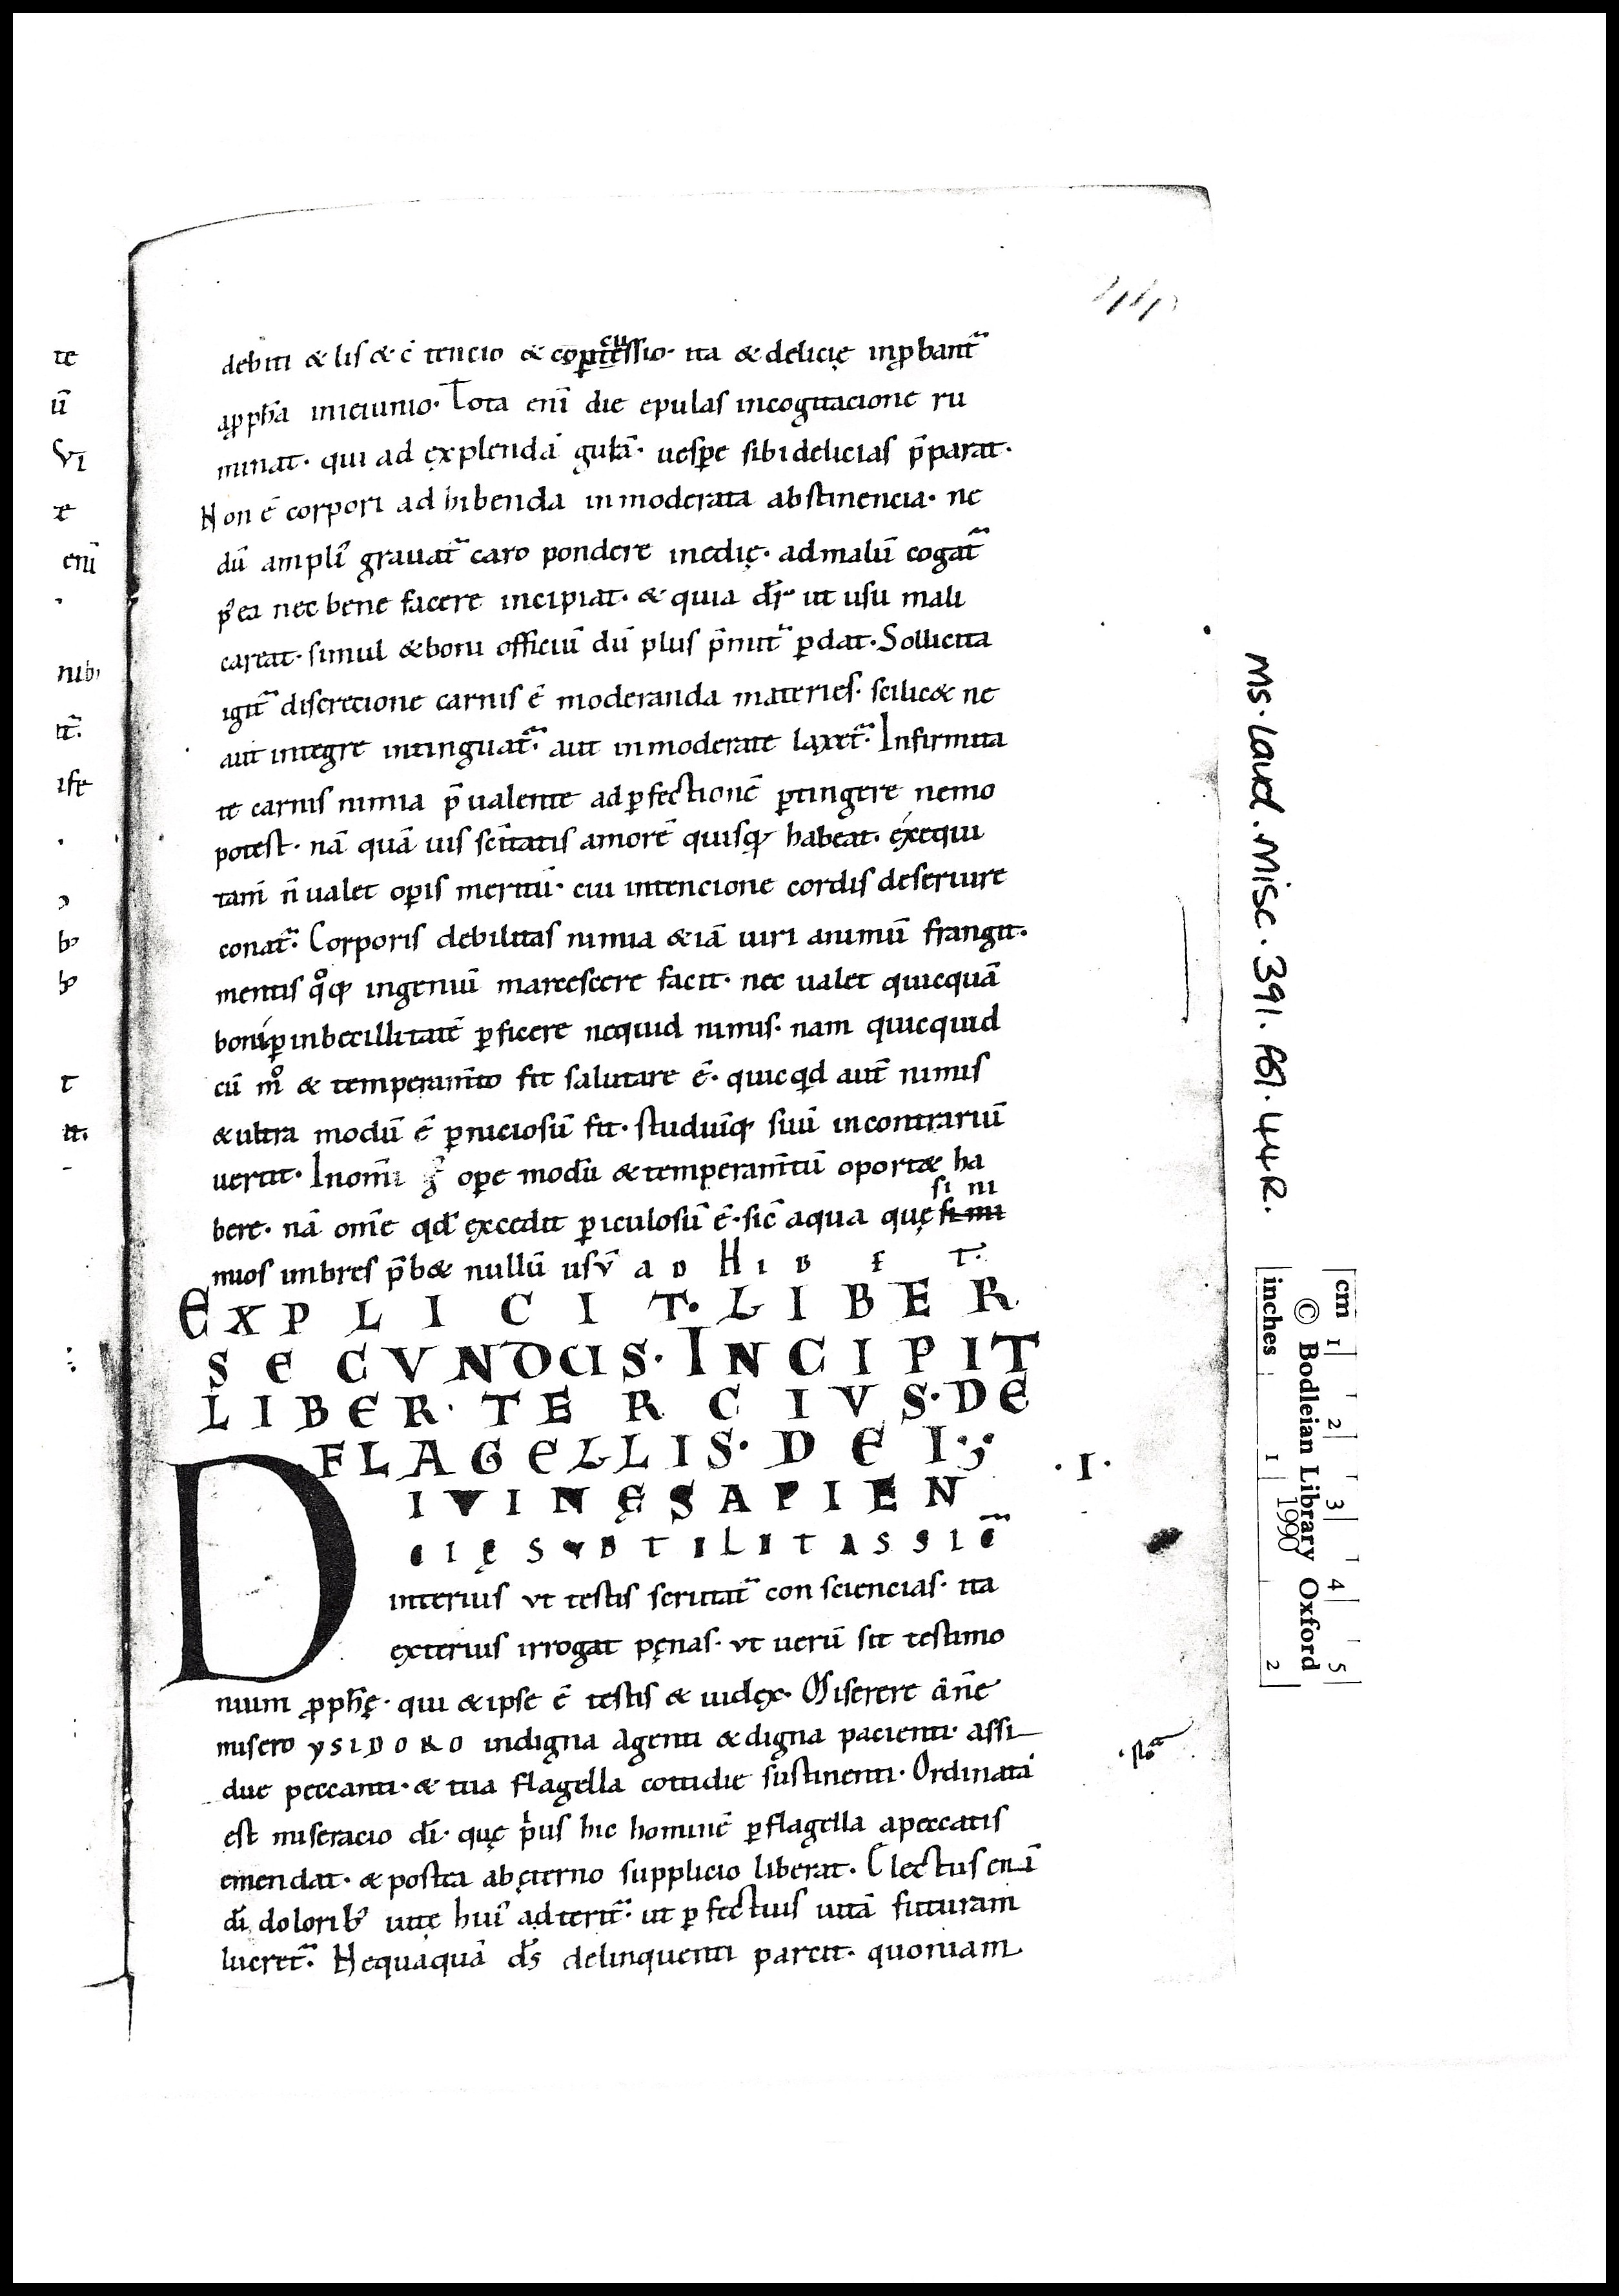 debiti & lis & c̄ tencio & copcussio· ita & delicię inꝓbant᷑
aꝓph̄a inieiunio· Tota enī die epulas incogitacione ru
minat· qui ad ęxplendā gulā· uesꝑe sibi delicias p̄parat·
Non ē corpori adhibenda inmoderata abstinencia· ne
dū ampli᷒ grauat᷑ caro pondere inedię· admalū cogat᷑
p᷒ea nec bene facere incipiat· & quia dr̄ ut usu mali
careat· simul & boni officiū dū plus p̄mit᷑ ꝑdat· Sollicita
igit᷑ discrecione carnis ē moderanda materies· scilic& ne
aut integre intinguat᷑· aut inmoderate laxet᷑· Infirmita
te carnis nimia p̄ualente adꝑfectionē ꝑtingere nemo
potest· nā quāuis sc̄itatis amorē quisq; habeat· exequi
tam̄ n̄ ualet oꝑis meritū· cui intencione cordis deseruire
conat᷑· Corporis debilitas nimia & iā uiri animū frangit·
mentis qͦq; ingeniū marcescere facit· nec ualet quicquā
boni ꝑ inbecillitatē ꝑficere nequid nimis· nam quicquid
cū mͦ & temperam̄to fit salutare ē· quicqd aut̄ nimis
& ultra modū ē ꝑniciosū fit· studiūq; suū incontrariū
uertit· Inom̄i gͦ oꝑe modū & temperam̄tū oport& ha
bere· nā om̄e qd̄ excedit ꝑiculosū ē· sic̄ aqua quę si ni
mios imbres p̄b& nullū usū A D H I B E T·
EXPLICIT· LIBER
SECVNDUS· INCIPIT
LIBER· TERCIVS· DE
FLAGELLIS· DEI·;
·I·
DIVINĘ SAPIEN
CIĘ SVBTILITAS SIC̄
interius vt testis scrutat᷑ consciencias· ita
exterius irrogat pęnas· vt uerū sit testimo
nium ꝓph̄ę· qui & ipse ē testis & iudęx· Miserere dn̄e
misero YSIDORO indigna agenti & digna pacienti· assi
due peccanti· & tua flagella cottidie sustinenti· Ordinata
est miseracio dī· quę pͥus hic hominē ꝑ flagella apeccatis
emendat· & postea abęterno supplicio liberat· Electus enī
dī dolorib᷒ uitę hui᷒ adterit᷑· ut ꝑfectius uitā futuram
lucret᷑· Nequaquā ds̄ delinquenti parcit· quoniam
te
ū
VI
enī
nib;
ise
Ms. Laud. Misc. 391. fol. 44R.
cm 1 2 3 4 5
© Bodleian Library Oxford
1990
inches 1 2